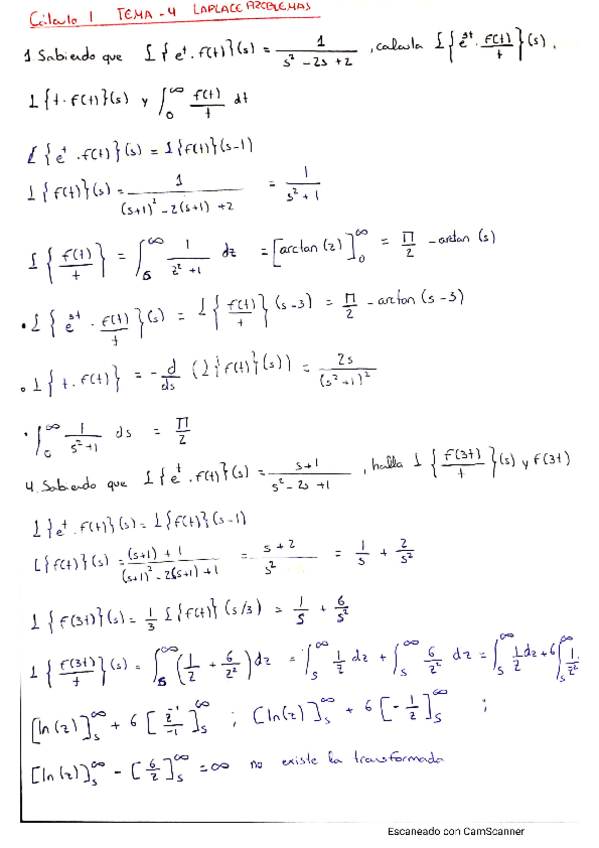 Cálculo 1 TEMA-4 LAPLACE PROBLEMAS
1 Sabiendo que L{e^t . f(t)}(s) = 1/(s² - 2s + 2), calcula L{e^3t . f(t)/t}(s),
L{t . f(t)}(s) y ∫_0^∞ f(t)/t dt
L{e^t . f(t)}(s) = L{f(t)}(s-1)
L{f(t)}(s) = 1/((s+1)² - 2(s+1) + 2) = 1/(s² + 1)
L{f(t)/t} = ∫_s^∞ 1/(z² + 1) dz = [arctan(z)]_0^∞ = π/2 - arctan(s)
• L{e^3t . f(t)/t}(s) = L{f(t)/t}(s-3) = π/2 - arctan(s-3)
• L{t . f(t)} = - d/ds (L{f(t)}(s)) = 2s/(s²+1)²
• ∫_0^∞ 1/(s²+1) ds = π/2
4. Sabiendo que L{e^t . f(t)}(s) = s+1/(s² - 2s + 1), halla L{f(3t)/t}(s) y f(3t)
L{e^t . f(t)}(s) = L{f(t)}(s-1)
L{f(t)}(s) = ((s+1) + 1)/((s+1)² - 2(s+1) + 1) = (s+2)/s² = 1/s + 2/s²
L{f(3t)}(s) = 1/3 L{f(t)}(s/3) = 1/s + 6/s²
L{f(3t)/t}(s) = ∫_s^∞ (1/z + 6/z²) dz = ∫_s^∞ 1/z dz + ∫_s^∞ 6/z² dz = ∫_s^∞ 1/z dz + 6∫_s^∞ 1/z²
[ln(z)]_s^∞ + 6[z^-1/-1]_s^∞ ; [ln(z)]_s^∞ + 6[-1/z]_s^∞ ;
[ln(z)]_s^∞ - [6/z]_s^∞ = ∞ no existe la transformada
Escaneado con CamScanner